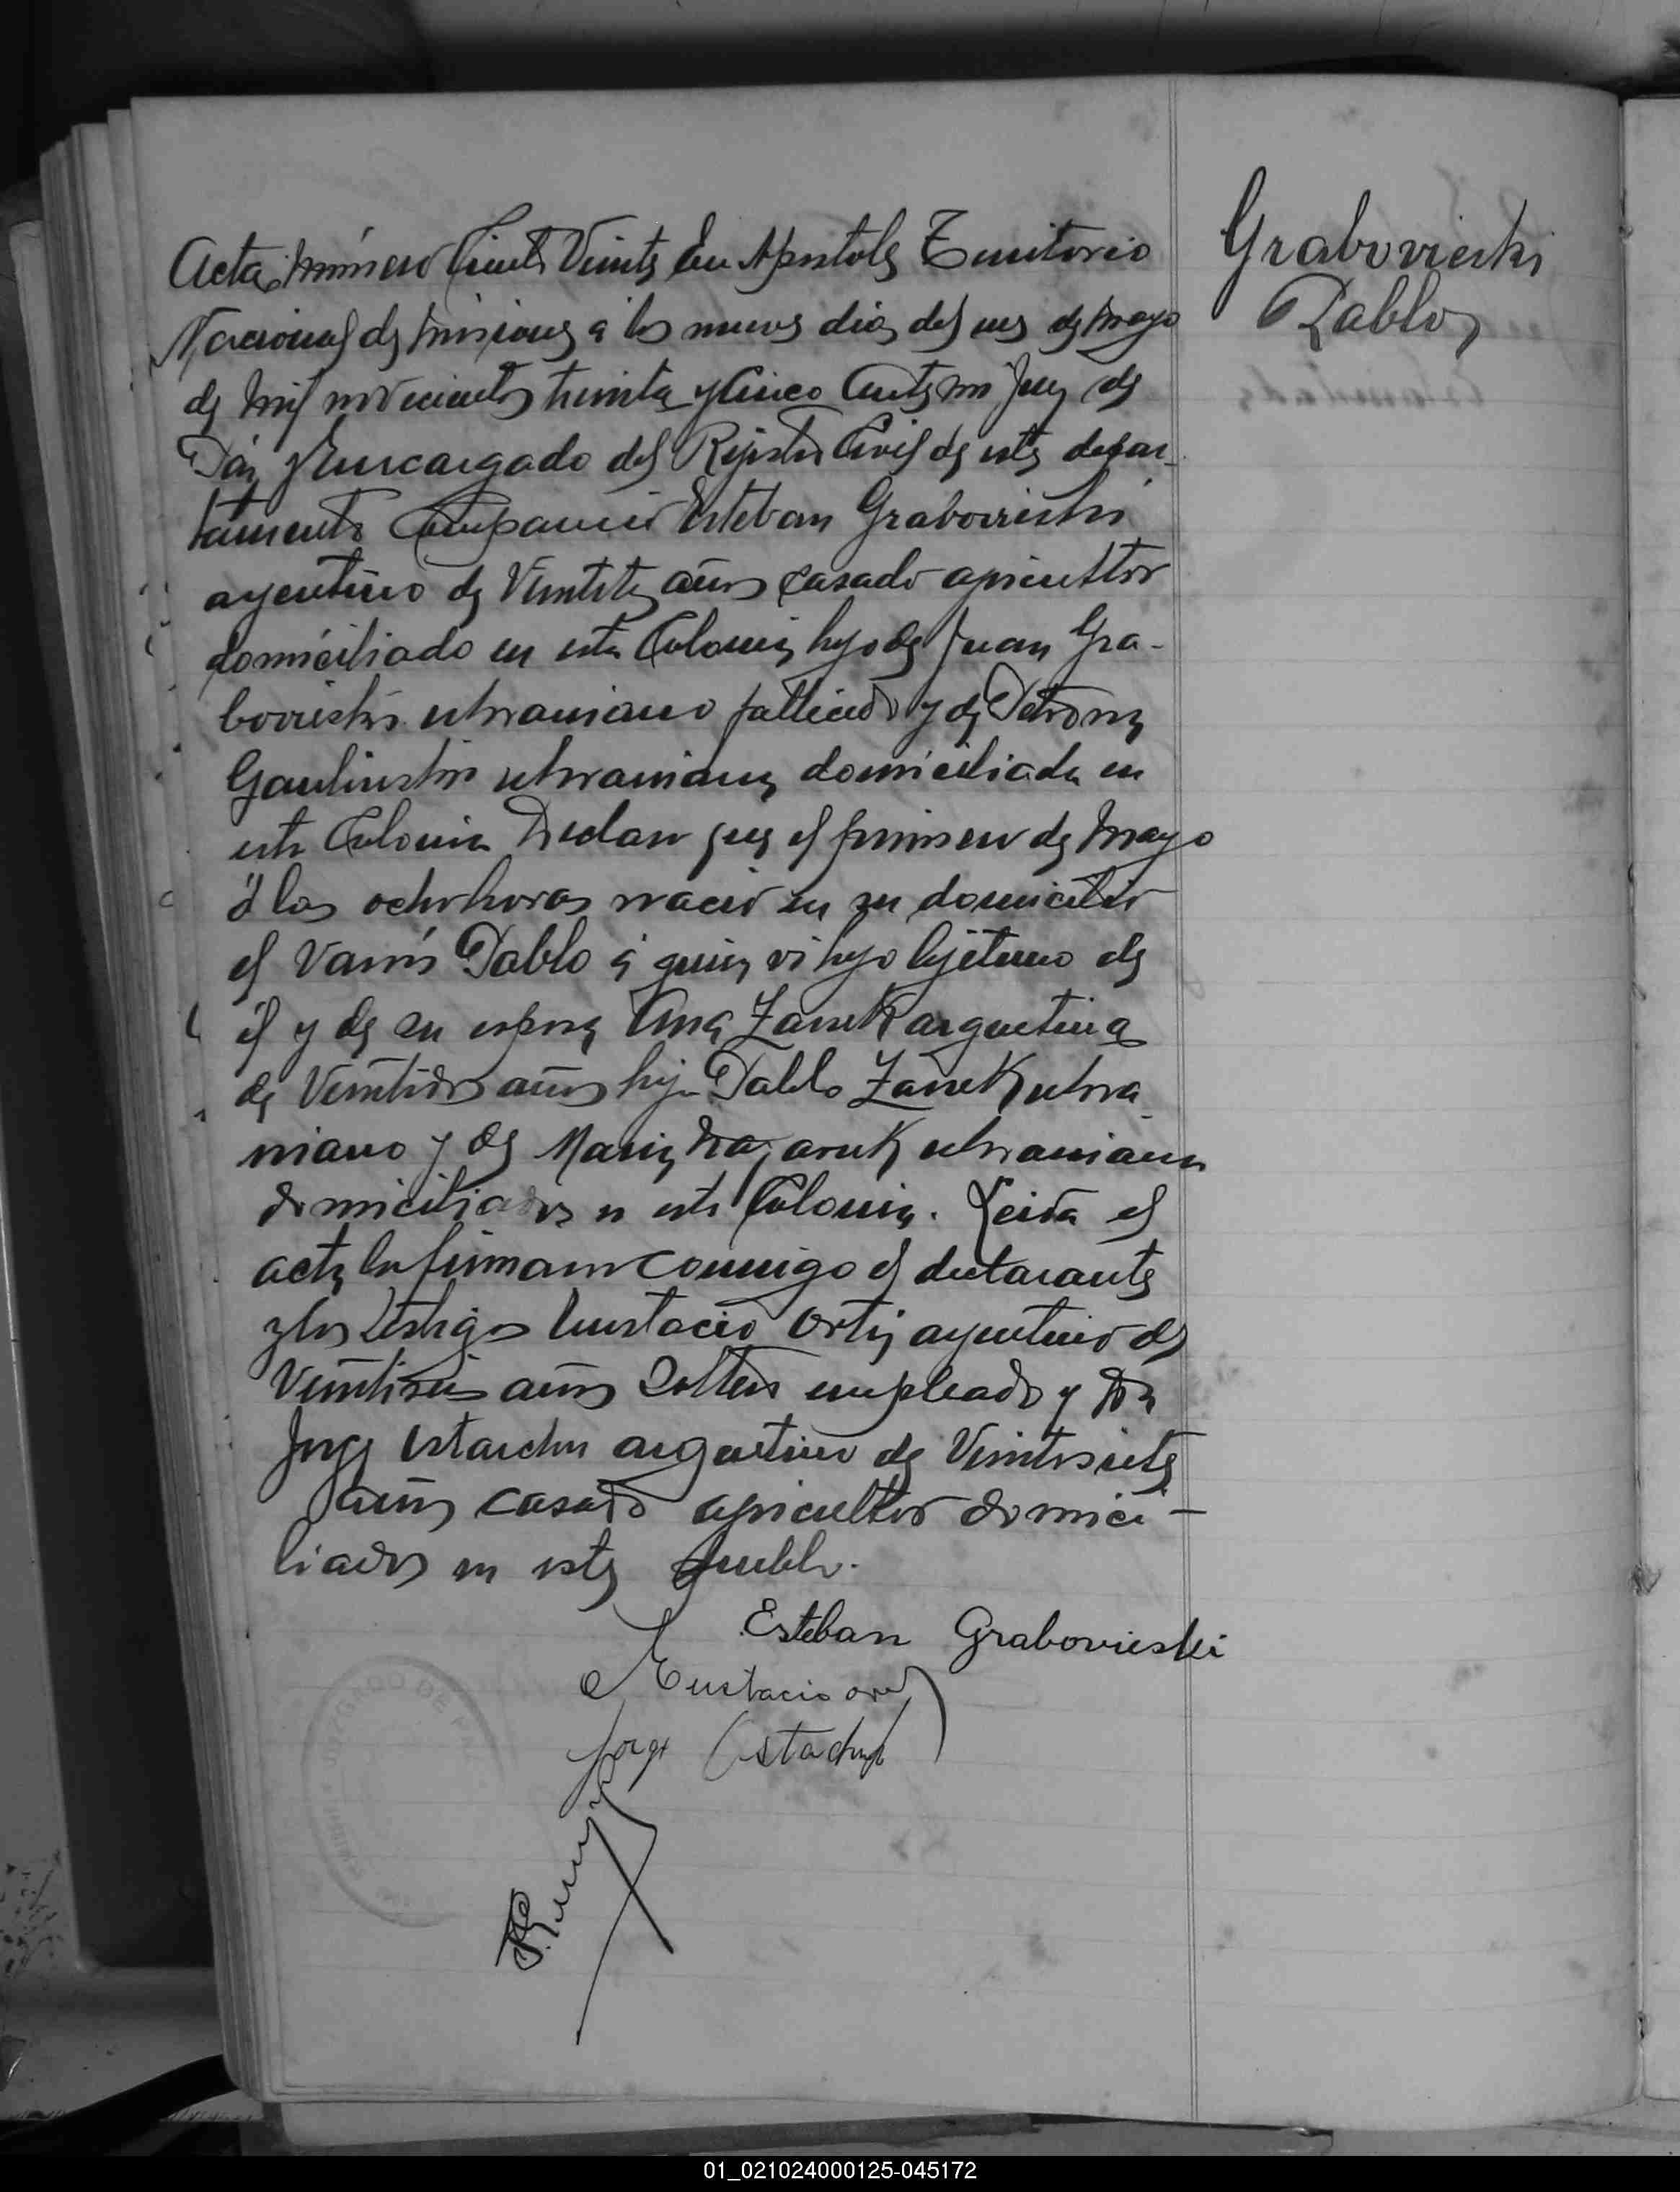 Acta número Ciento Veinte En Apostoles Territorio
Nacional de Misiones a los nueve dias del mes de Mayo
de Mil novecientos treinta y Cinco Ante mi Juez de
Paz y Encargado del Rejistro Civil de este depar-
tamento Comparecio Esteban Grabovieski
argentino de años casado agricultor
domiciliado en esta Colonia hijo de Juan Gra-
bovieski ukraniano fallecido y de Petrona
ukraniana domiciliada en
esta Colonia Declaro que el primero de Mayo
á las ocho horas nació en su domicilio
el Varon Pablo á quien vi hijo lejitimo de
él y de su esposa Ana Zaruk argentina
de Veintidos años hija Pablo Zaruk ukra
niano y de Maria ukraniana
domiciliados en esta Colonia. Leida el
acta la firmaron conmigo el declarante
y los testigos Eustacio Ortiz argentino de
Veintiseis años Soltero empleado y Don
Jorge Ostarchuk argentino de Veintisiete
años casado agricultor domici-
liados en este pueblo.
Esteban Grabovieski
Eustacio
Jorge
Grabovieski
Pablo
JUZGADO DE
01_021024000125-045172